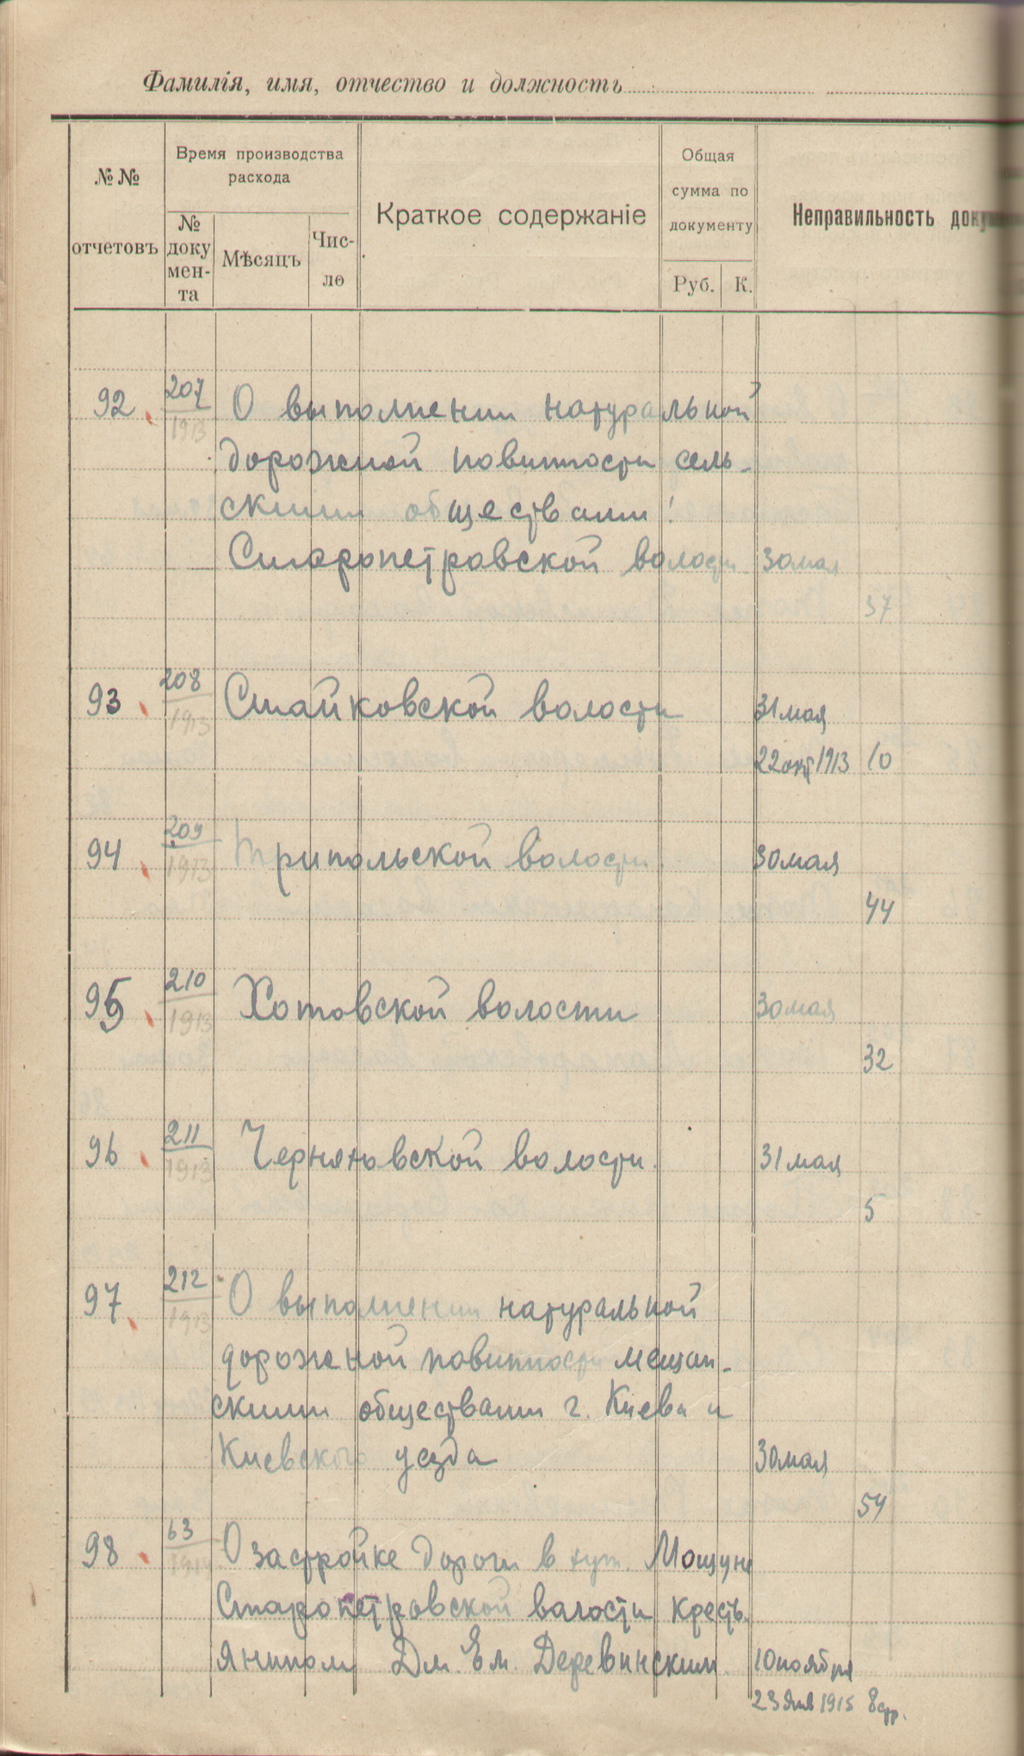 Фамилія, имя, отчество и должность
№№ отчетовъ
Время производства расхода
№ доку мен- та
Мѣсяцъ
Чис- ло
Краткое содержаніе
Общая сумма по документу
Руб. К.
Неправильность
92 207 О выполнении натуральной
1913
дорожной повинности сель-
скими обществами:
Старопетровской волости 30 мая
37
93 208 Стайковской волости 31 мая
1913
22 окт 1913 10
94 209 Трипольской волости 30 мая
1913
44
95 210 Хотовской волости 30 мая
1913
32
96 211 Черняховской волости 31 мая
1913
5
97 212 О выполнении натуральной
1913
дорожной повинности мещан-
скими обществами г. Киева и
Киевского уезда 30 мая
54
98 63 О застройке дороги в хут. Мощуне
1914
Старопетровской волости кресть-
янином Дм. Ем. Деревинским 10 ноября
23 янв 1915 8 стр.